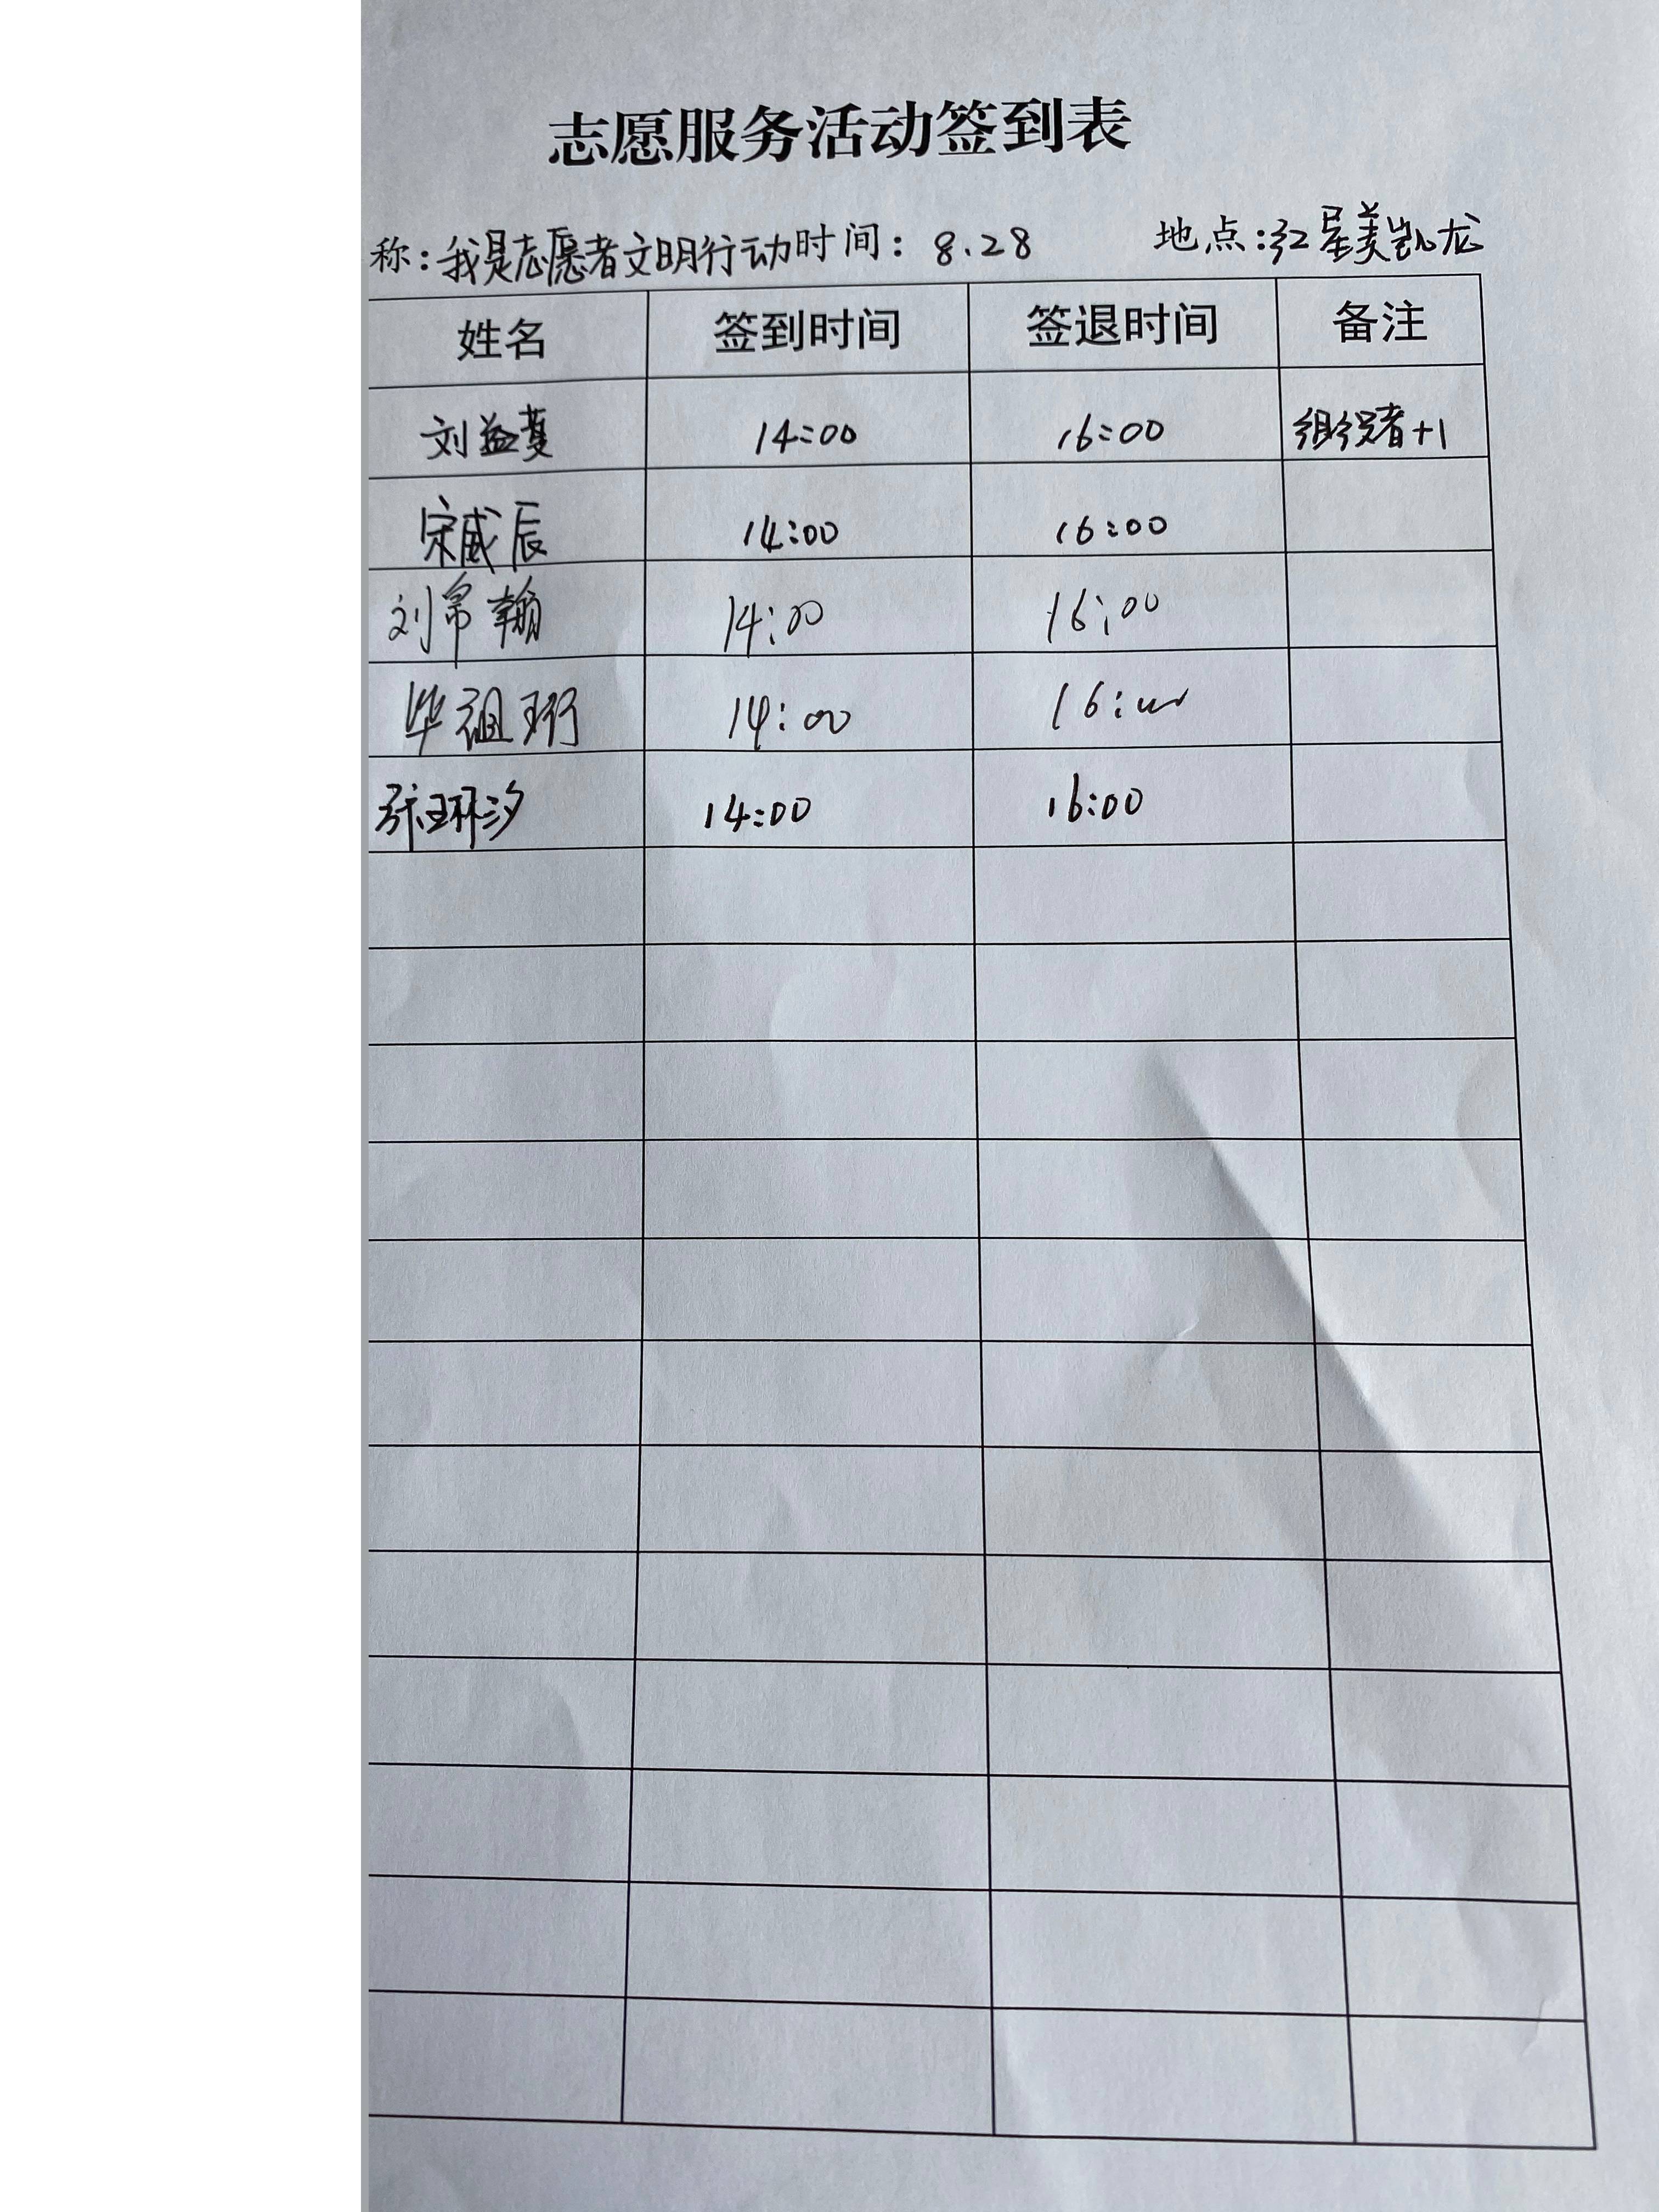 志愿服务活动签到表
称:我是志愿者文明行动时间: 8.28 地点:红星美凯龙
姓名 签到时间 签退时间 备注
刘益蔓 14:00 16:00 组织者+1
宋威辰 14:00 16:00
刘帛翰 14:00 16:00
毕祖珩 14:00 16:00
张环汐 14:00 16:00